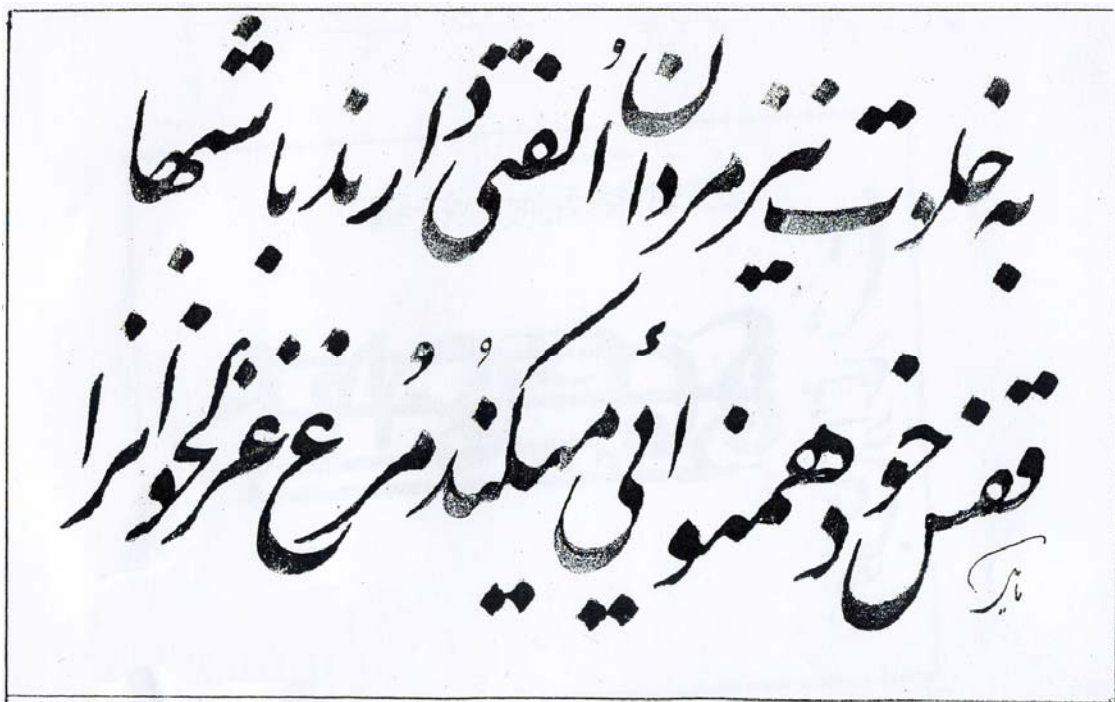 به خلوت نیز مردان اُلفتی دارند با شبها
قفس خود همنوائی میکند مُرغ غزلخوانرا